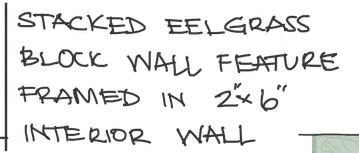 STACKED EELGRASS
BLOCK WALL FEATURE
FRAMED IN 2"x6"
INTERIOR WALL